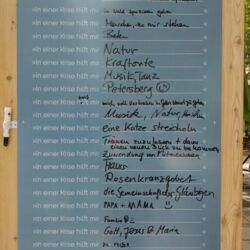 »In einer Krise hilft mir
»In einer Krise hilft mir Menschen, die mir stehen
»In einer Krise hilft mir Beten
»In einer Krise hilft mir Natur
»In einer Krise hilft mir Kraftorte
»In einer Krise hilft mir Musik, Tanz
»In einer Krise hilft mir Petersberg
»In einer Krise hilft mir und, voll Vertrauen
»In einer Krise hilft mir Musik, Natur,
»In einer Krise hilft mir eine Katze streicheln
»In einer Krise hilft mir Tränen zuzulassen + dann
»In einer Krise hilft mir Zuwendung von Mitmenschen
»In einer Krise hilft mir
»In einer Krise hilft mir Rosenkranzgebet
»In einer Krise hilft mir die Gemeinschaft der Gläubigen
»In einer Krise hilft mir PAPA + MAMA
»In einer Krise hilft mir Familie
»In einer Krise hilft mir Gott, Jesus & Maria
»In einer Krise hilft mir